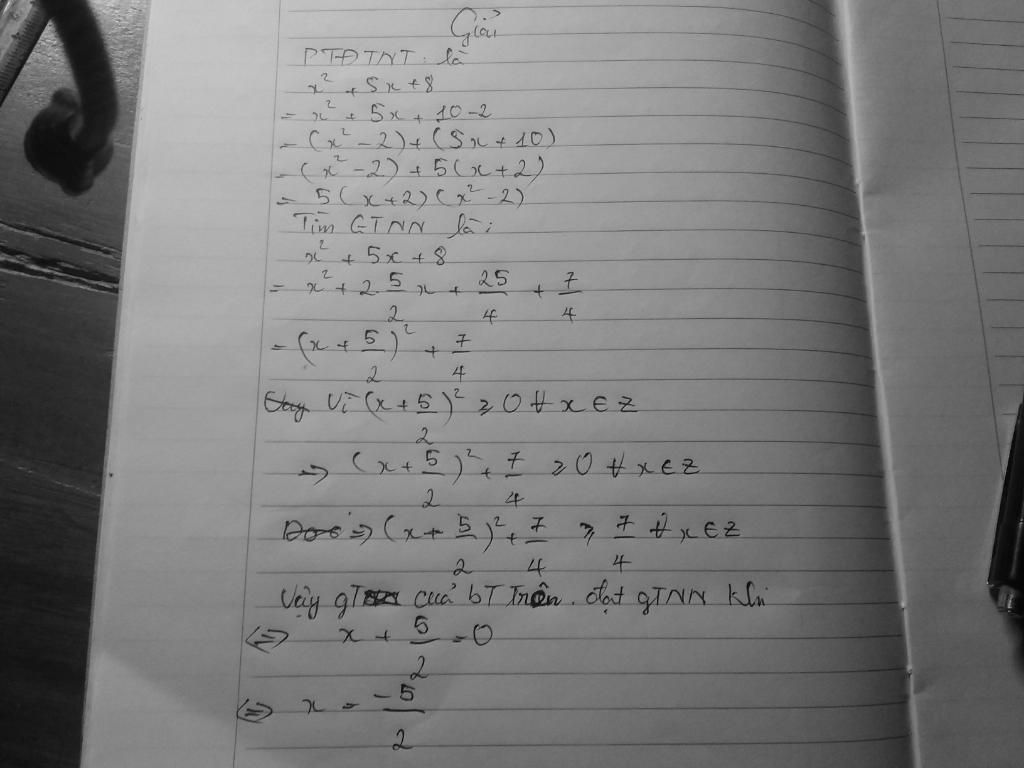 Giải
PTĐTNT: là
x² + 5x + 8
= x² + 5x + 10 - 2
= (x² - 2) + (5x + 10)
= (x² - 2) + 5(x + 2)
= 5(x + 2)(x² - 2)
Tìm GTNN là:
x² + 5x + 8
= x² + 2 5/2 x + 25/4 + 7/4
= (x + 5/2)² + 7/4
Vì (x + 5/2)² ≥ 0 ∀ x ∈ z
=> (x + 5/2)² + 7/4 ≥ 0 ∀ x ∈ z
=> (x + 5/2)² + 7/4 ≥ 7/4 ∀ x ∈ z
Vậy gT của bT Trên. đạt gTNN khi
<=> x + 5/2 = 0
<=> x = -5/2